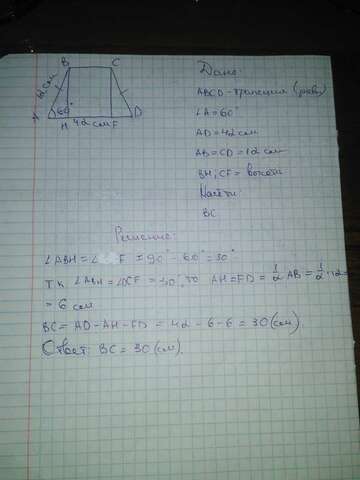 B C
12 см
60°
A H 42 см F D
Дано:
ABCD - трапеция (равн)
∠A = 60°
AD = 42 см
AB = CD = 12 см
BH, CF = высоты
Найти:
BC
Решение:
∠ABH = ∠ F = 90° - 60° = 30°
Т.к ∠ABH = ∠DCF = 30°, то AH = FD = 1/2 AB = 1/2 · 12 =
= 6 см
BC = AD - AH - FD = 42 - 6 - 6 = 30 (см).
Ответ: BC = 30 (см).